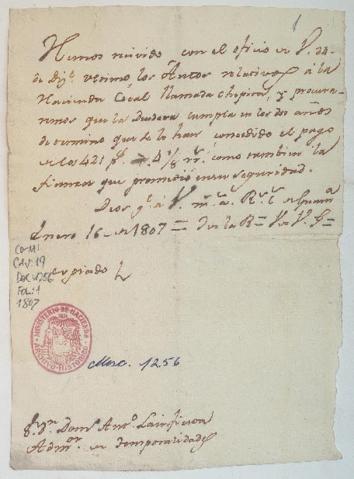 1
Hemos recivido con el oficio de V. de
de Dizᵉ ultimo los Autos relativos á la
Hacienda Cocal llamada Chepiro, y procura-
remos que la deudora cumpla en los dos años
de termino que se lo han concedido el pago
de los 421 pˢ 4 1/8 rˢ como tambien la
fianza que prometió en su seguridad.
Dios gᵉ á V. mˢ aˢ Rˡ
Enero 16 de 1807
CO-MI
CAJ: 19
DOC: 1256
FOL: 1
1807
MINISTERIO DE HACIENDA
ARCHIVO HISTORICO
Misc. 1256
Sʳ Dⁿ Antᵒ
Admᵒʳ de Temporalidades